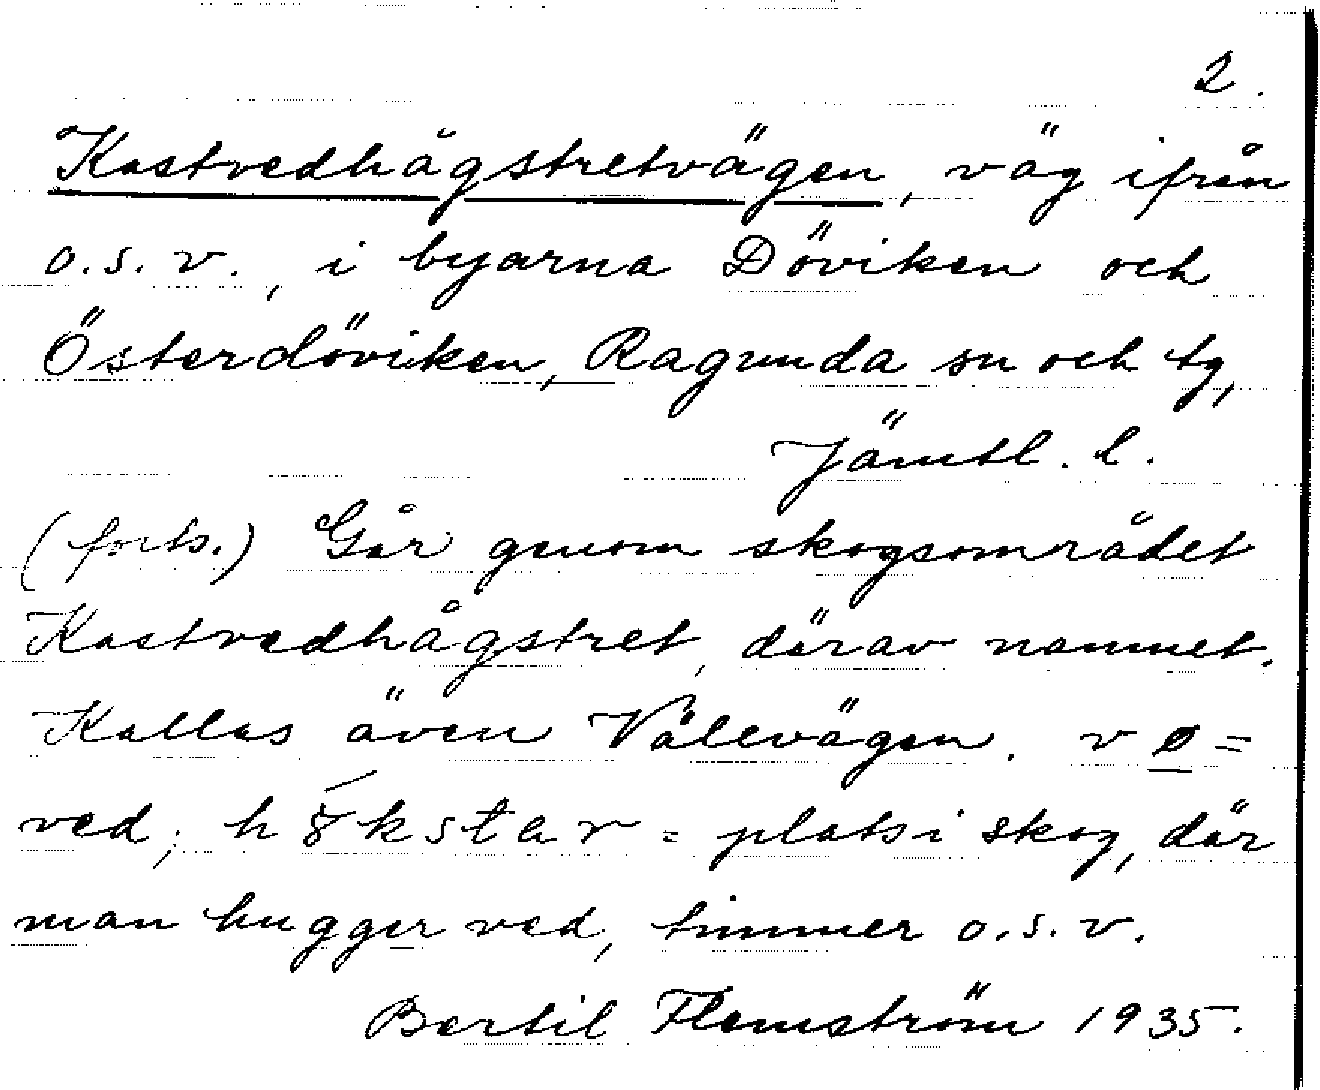 2.
Kastvedhågstretvägen, väg ifrån
o.s.v., i byarna Döviken och
Österdöviken, Ragunda sn och tg,
Jämtl. l.
(forts.) Går genom skogsområdet
Kastvedhågstret, därav namnet.
Kallas även Vålevägen. v ø =
ved; h 8 k s t a r = plats i skog, där
man hugger ved, timmer o.s.v.
Bertil Flemström 1935.